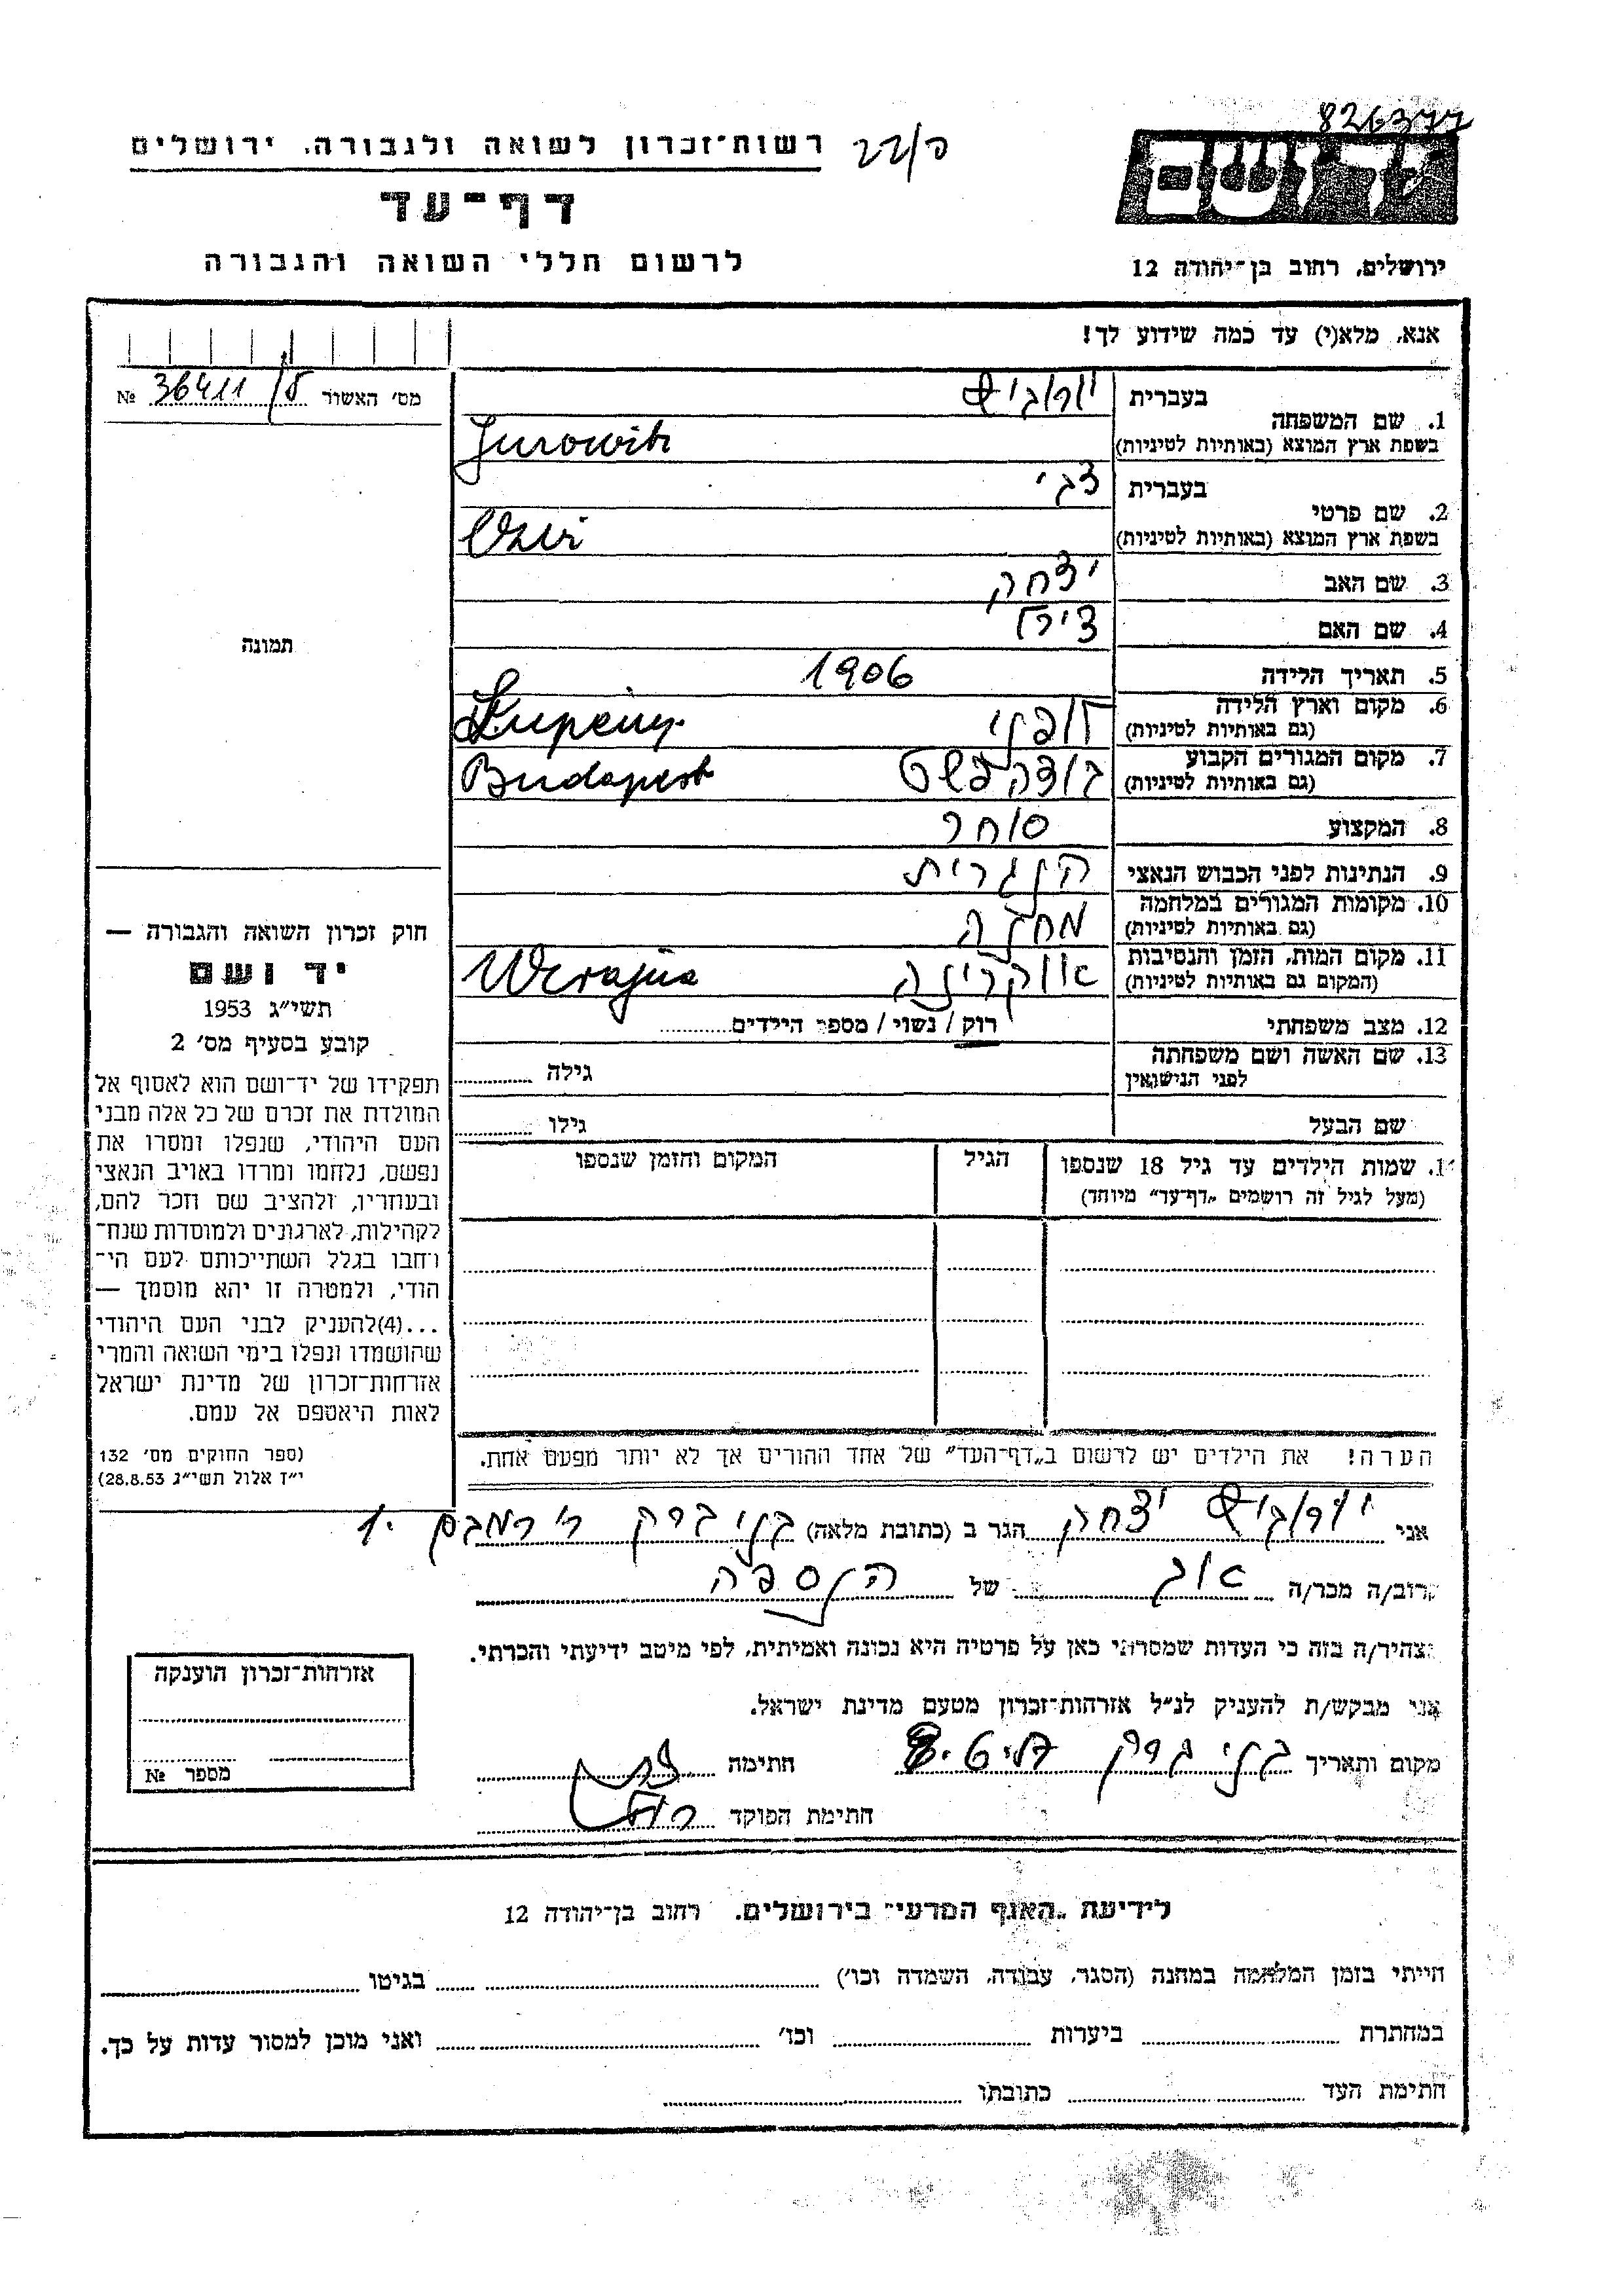 826377
רשות־זכרון לשואה ולגבורה. ירושלים
דף־עד
לרשום חללי השואה והגבורה
ירושלים, רחוב בן־יהודה 12
אנא, מלא(י) עד כמה שידוע לך!
מס׳ האשור 36411 №
1. שם המשפחה
בעברית
בשפת ארץ המוצא (באותיות לטיניות) Jurowitz
2. שם פרטי
בעברית צבי
בשפת ארץ המוצא (באותיות לטיניות)
3. שם האב יצחק
4. שם האם
5. תאריך הלידה 1906
6. מקום וארץ הלידה
(גם באותיות לטיניות) לופני Lupeny
7. מקום המגורים הקבוע
(גם באותיות לטיניות) בודהפשט Budapest
8. המקצוע סוחר
9. הנתינות לפני הכבוש הנאצי הונגרית
10. מקומות המגורים במלחמה
(גם באותיות לטיניות) מחנה
11. מקום המות, הזמן והנסיבות
(המקום גם באותיות לטיניות) אוקרינה Ucrajna
12. מצב משפחתי רוק / נשוי / מספר הילדים
13. שם האשה ושם משפחתה
לפני הנישואין גילה
שם הבעל גילו
תמונה
חוק זכרון השואה והגבורה —
יד ושם
תשי״ג 1953
קובע בסעיף מס׳ 2
תפקידו של יד־ושם הוא לאסוף אל
המולדת את זכרם של כל אלה מבני
העם היהודי, שנפלו ומסרו את
נפשם, נלחמו ומרדו באויב הנאצי
ובעוזריו, ולהציב שם וזכר להם,
לקהילות, לארגונים ולמוסדות שנח־
רבו בגלל השתייכותם לעם הי־
הודי, ולמטרה זו יהא מוסמך —
...(4)להעניק לבני העם היהודי
שהושמדו ונפלו בימי השואה והמרי
אזרחות־זכרון של מדינת ישראל
לאות היאספם אל עמם.
(ספר החוקים מס׳ 132
י״ז אלול תשי״ג 28.8.53)
שמות הילדים עד גיל 18 שנספו הגיל המקום והזמן שנספו
(מעל לגיל זה רושמים „דף־עד״ מיוחד)
הערה! את הילדים יש לרשום ב„דף־העד״ של אחד ההורים אך לא יותר מפעם אחת.
אני יצחק הגר ב (כתובת מלאה) בני ברק
קרוב/ה מכר/ה של הנספה
מצהיר/ה בזה כי העדות שמסרתי כאן על פרטיה היא נכונה ואמיתית, לפי מיטב ידיעתי והכרתי.
אני מבקש/ת להעניק לנ״ל אזרחות־זכרון מטעם מדינת ישראל.
מקום ותאריך בני ברק חתימה
חתימת הפוקד
אזרחות־זכרון הוענקה
מספר №
לידיעת „האגף המדעי״ בירושלים. רחוב בן־יהודה 12
הייתי בזמן המלחמה במחנה (הסגר, עבודה, השמדה וכו׳) בגיטו
במחתרת ביערות וכו׳ ואני מוכן למסור עדות על כך.
חתימת העד כתובתו